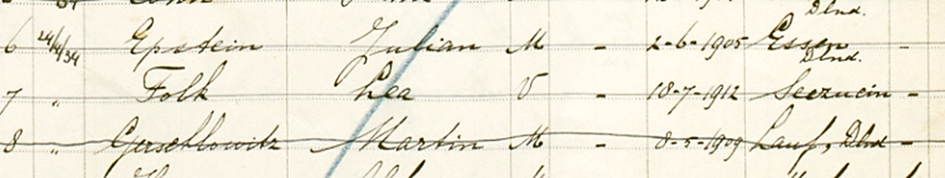 6 24/4/34 Epstein Julian M - 2-6-1905 Essen Dlnd. -
7 " Folk Lea V - 18-7-1912 Dlnd. -
8 " Gerschlowitz Martin M - 8-5-1909 Lauf, Dlnd -